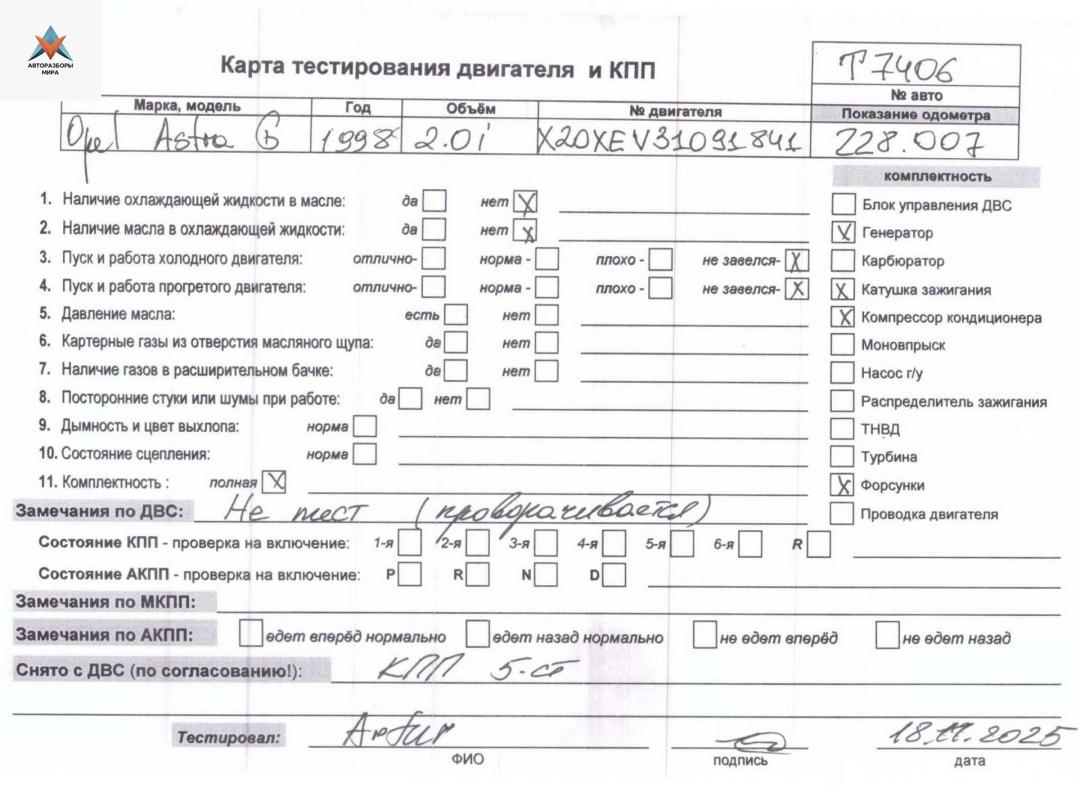 АВТОРАЗБОРЫ
МИРА
Карта тестирования двигателя и КПП
T7406
№ авто
Марка, модель Год Объём № двигателя Показание одометра
Opel Astra G 1998 2.0i X20XEV31091841 228.007
комплектность
1. Наличие охлаждающей жидкости в масле: да нет X
2. Наличие масла в охлаждающей жидкости: да нет X
3. Пуск и работа холодного двигателя: отлично- норма - плохо - не завелся- X
4. Пуск и работа прогретого двигателя: отлично- норма - плохо - не завелся- X
5. Давление масла: есть нет
6. Картерные газы из отверстия масляного щупа: да нет
7. Наличие газов в расширительном бачке: да нет
8. Посторонние стуки или шумы при работе: да нет
9. Дымность и цвет выхлопа: норма
10. Состояние сцепления: норма
11. Комплектность : полная X
Блок управления ДВС
X Генератор
Карбюратор
X Катушка зажигания
X Компрессор кондиционера
Моновпрыск
Насос г/у
Распределитель зажигания
ТНВД
Турбина
X Форсунки
Проводка двигателя
Замечания по ДВС: Не тест (проворачивается)
Состояние КПП - проверка на включение: 1-я 2-я 3-я 4-я 5-я 6-я R
Состояние АКПП - проверка на включение: P R N D
Замечания по МКПП:
Замечания по АКПП: едет вперёд нормально едет назад нормально не едет вперёд не едет назад
Снято с ДВС (по согласованию!): КПП 5-ст
Тестировал: Artur 18.11.2025
ФИО подпись дата